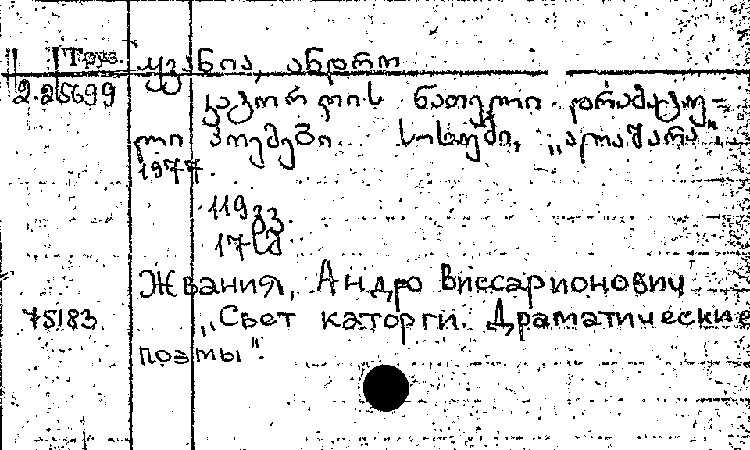 Груз. ჟვანია, ანდრო
2.25699 კატორღის ნათელი. დრამატუ-
ლი პოემები. სოხუმი, „ალაშარა“.
1977.
119 გვ.
17 სმ
Жвания, Андро Виссарионович
75183 „Свет каторги. Драматические
поэмы".